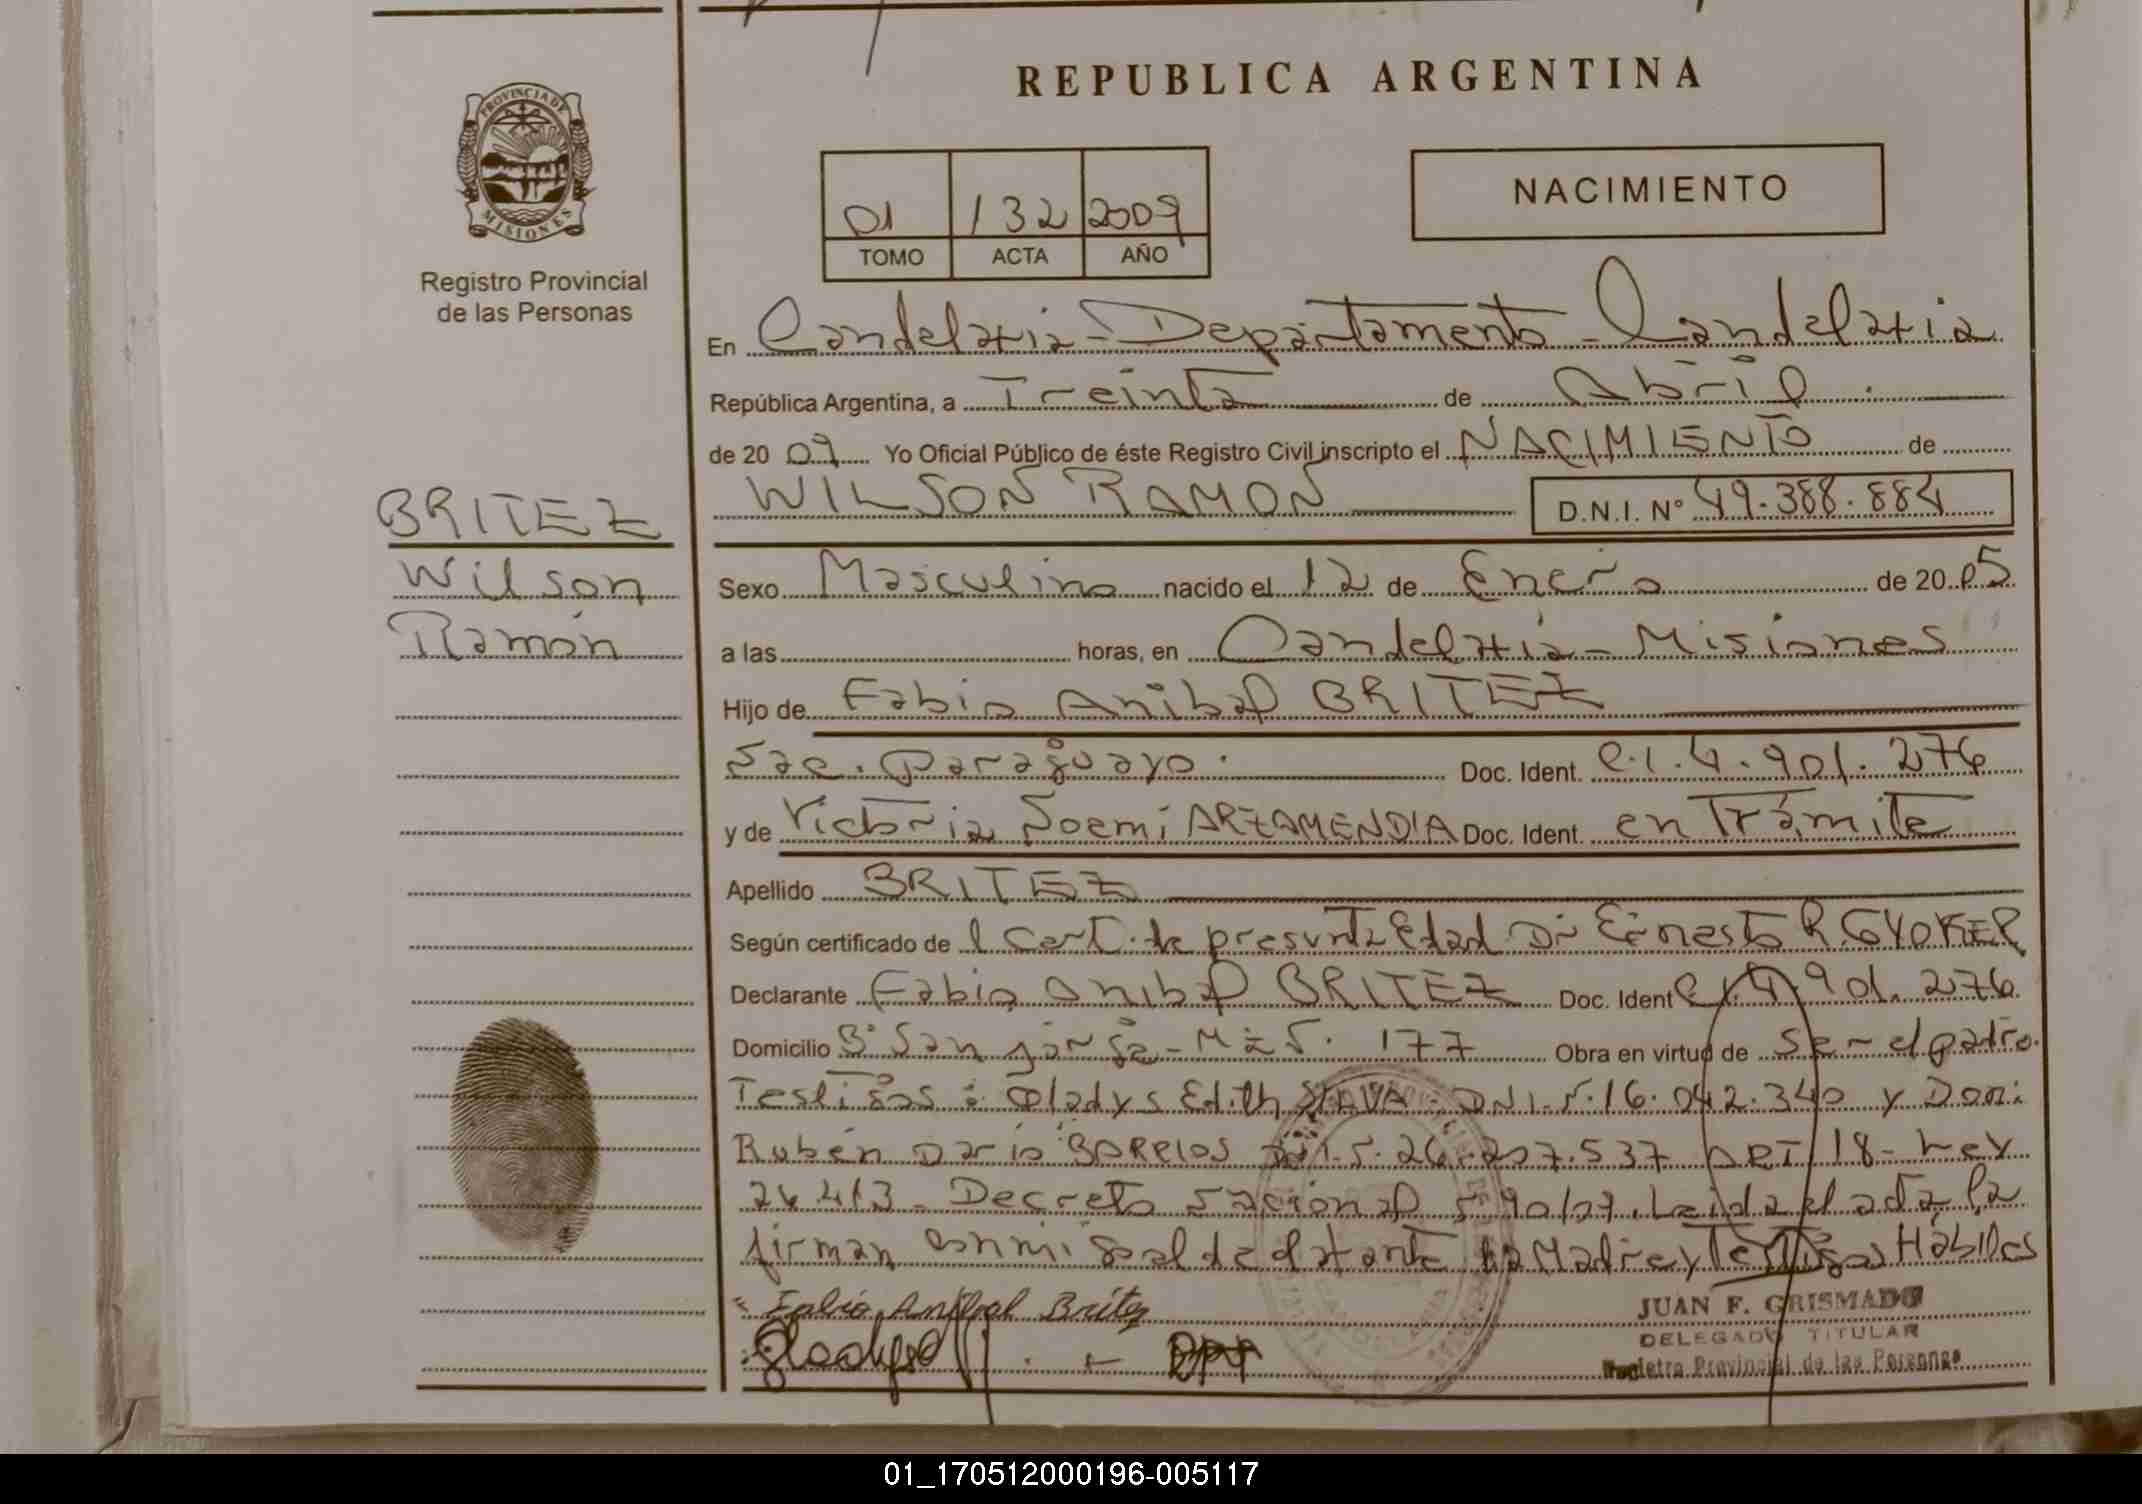 PROVINCIA DE
MISIONES
Registro Provincial
de las Personas
BRITEZ
Wilson
Ramón
REPUBLICA ARGENTINA
01 132 2009
TOMO ACTA AÑO
NACIMIENTO
En Candelaria - Departamento - Candelaria
República Argentina, a Treinta de Abril
de 20 09 Yo Oficial Público de éste Registro Civil inscripto el NACIMIENTO de
WILSON RAMON D.N.I. Nº 49.388.884
Sexo Masculino nacido el 12 de Enero de 20 05
a las horas, en Candelaria - Misiones
Hijo de Fabio Anibal BRITEZ
Nac. Paraguayo. Doc. Ident. C.I. 4.901.276
y de Victoria Noemi ARZAMENDIA Doc. Ident. en Trámite
Apellido BRITEZ
Según certificado de l Cert. de presunta Edad Dr Ernesto R. GYOKER
Declarante Fabio Anibal BRITEZ Doc. Ident C.I. 4.901.276
Domicilio Bº San Jorge - Mz N. 177 Obra en virtud de ser el padre.
Testigos: Gladys Edith DNI. N. 16.042.340 y Don:
Rubén Darío BARRIOS DNI. N. 26.207.537 ART 18 - Ley
26.413 - Decreto Nacional N 90/09. Leida el acta, la
firman conmigo el declarante la Madre y Testigos Hábiles
Fabio Anibal Britez
JUAN F. GRISMADO
DELEGADO TITULAR
Registro Provincial de las Personas
01_170512000196-005117